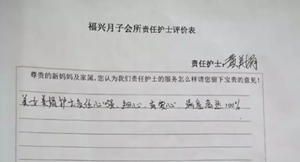 福兴月子会所责任护士评价表
责任护士:
尊贵的新妈妈及家属,您认为我们责任护士的服务怎么样请您留下宝贵的意见!
护士责任心强、细心、有爱心、满意度达100%